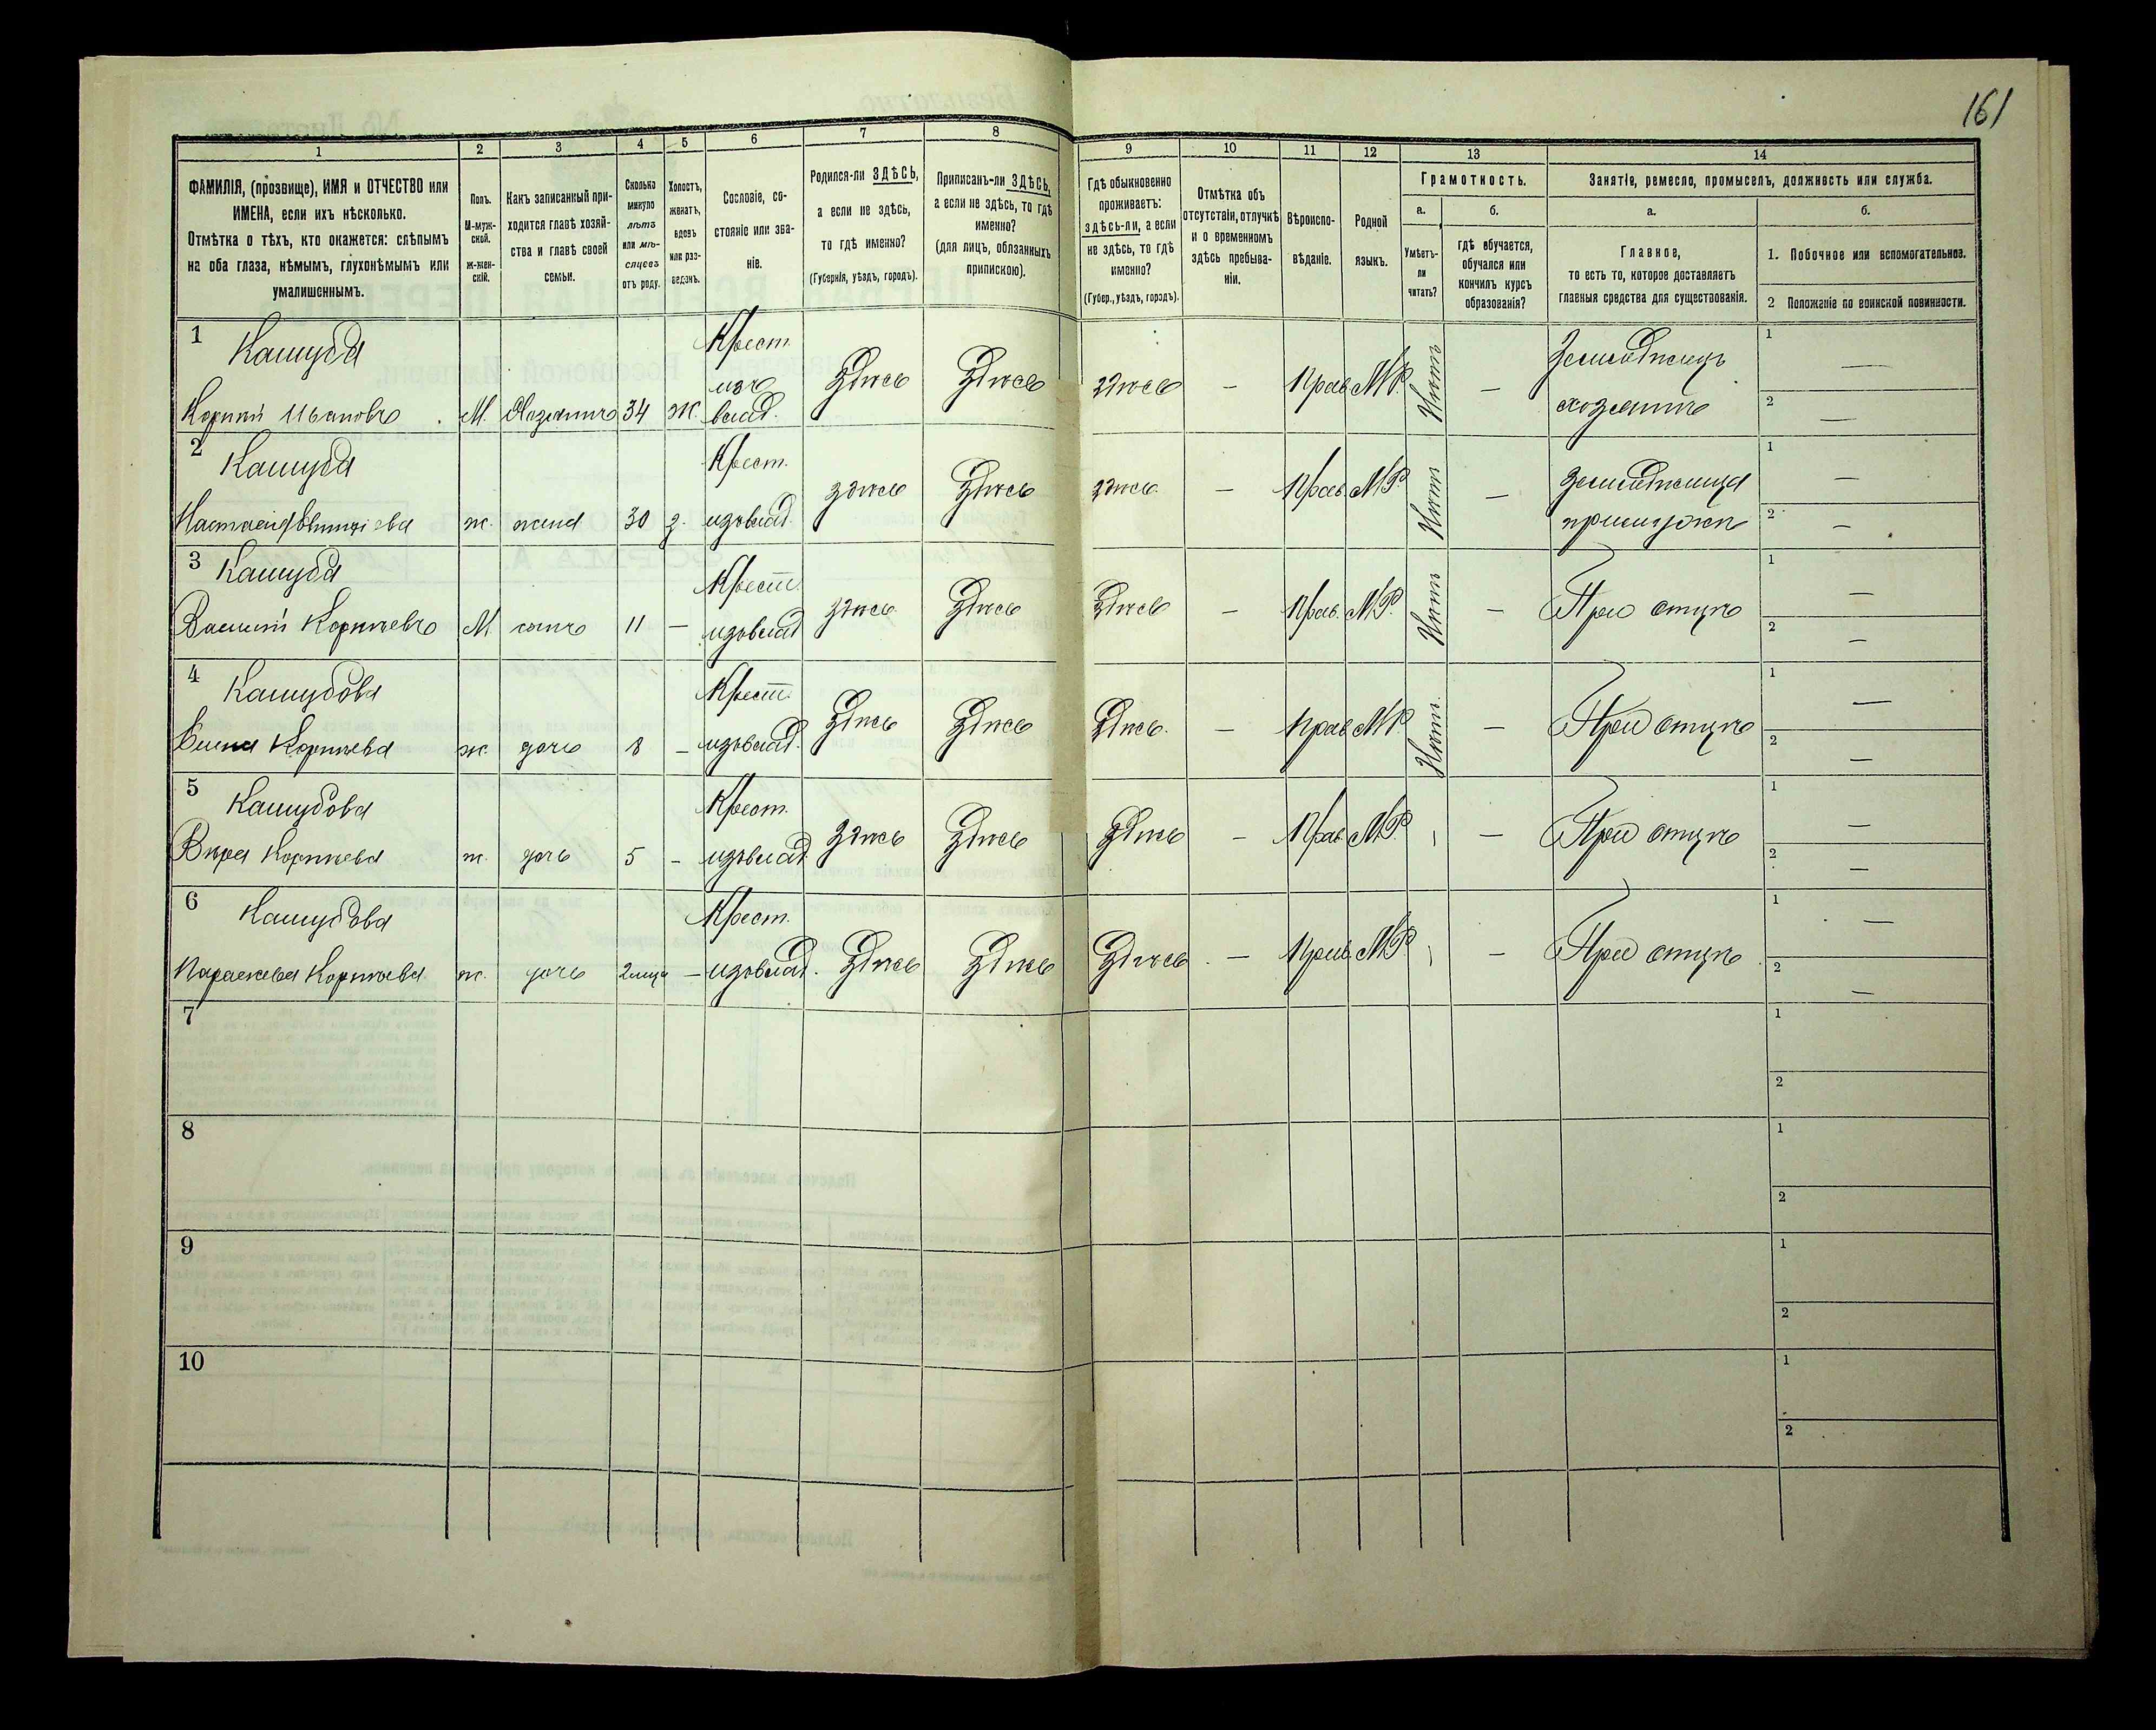 161
1
2
3
4
5
6
7
8
9
10
11
12
13
14
ФАМИЛІЯ, (прозвище), ИМЯ и ОТЧЕСТВО или
ИМЕНА, если ихъ нѣсколько.
Отмѣтка о тѣхъ, кто окажется: слѣпымъ
на оба глаза, нѣмымъ, глухонѣмымъ или
умалишеннымъ.
Полъ.
М-муж-
ской.
ж-жен-
скій.
Какъ записанный при-
ходится главѣ хозяй-
ства и главѣ своей
семьи.
Сколько
минуло
лѣтъ
или мѣ-
сяцевъ
отъ роду.
Холостъ,
женатъ,
вдовъ
или раз-
веденъ.
Сословіе, со-
стояніе или зва-
ніе.
Родился-ли ЗДѢСЬ,
а если не здѣсь,
то гдѣ именно?
(Губернія, уѣздъ, городъ).
Приписанъ-ли ЗДѢСЬ,
а если не здѣсь, то гдѣ
именно?
(для лицъ, обязанныхъ
припискою).
Гдѣ обыкновенно
проживаетъ:
здѣсь-ли, а если
не здѣсь, то гдѣ
именно?
(Губер., уѣздъ, городъ).
Отмѣтка объ
отсутствіи, отлучкѣ
и о временномъ
здѣсь пребыва-
ніи.
Вѣроиспо-
вѣданіе.
Родной
языкъ.
Грамотность.
а.
Умѣетъ-
ли
читать?
б.
гдѣ обучается,
обучался или
кончилъ курсъ
образованія?
Занятіе, ремесло, промыселъ, должность или служба.
а.
Главное,
то есть то, которое доставляетъ
главныя средства для существованія.
б.
1. Побочное или вспомогательное.
2 Положеніе по воинской повинности.
1
Кашуба
Корнѣй Ивановъ
М.
Хозяинъ
34
ж.
Крест.
изъ
влад.
Здѣсь
Здѣсь
здѣсь
—
Прав.
М.Р.
Нѣтъ
—
Земледѣлецъ
хозяинъ
1 —
2 —
2
Кашуба
Настасія
ж.
жена
30
з.
Крест.
изъ влад.
здѣсь
Здѣсь
здѣсь
—
Прав.
М.Р.
Нѣтъ
—
земледѣлица
при мужѣ
1 —
2 —
3
Кашуба
Василій Корнѣевъ
М.
сынъ
11
—
Крест.
изъ влад.
здѣсь
Здѣсь
Здѣсь
—
Прав.
М.Р.
Нѣтъ
—
При отцѣ
1 —
2 —
4
Кашубова
Елена Корнѣева
ж.
дочь
8
—
Крест.
изъ влад.
Здѣсь
Здѣсь
Здѣсь
—
Прав.
М.Р.
Нѣтъ.
—
При отцѣ
1 —
2 —
5
Кашубова
Вѣра Корнѣева
ж.
дочь
5
—
Крест.
изъ влад.
Здѣсь
Здѣсь
Здѣсь
—
Прав.
М.Р.
—
При отцѣ
1 —
2 —
6
Кашубова
Параскева Корнѣева
ж.
дочь
2 мѣца
—
Крест.
изъ влад.
Здѣсь
Здѣсь
Здѣсь
—
Прав.
М.Р.
—
При отцѣ
1 —
2 —
7
1
2
8
1
2
9
1
2
10
1
2